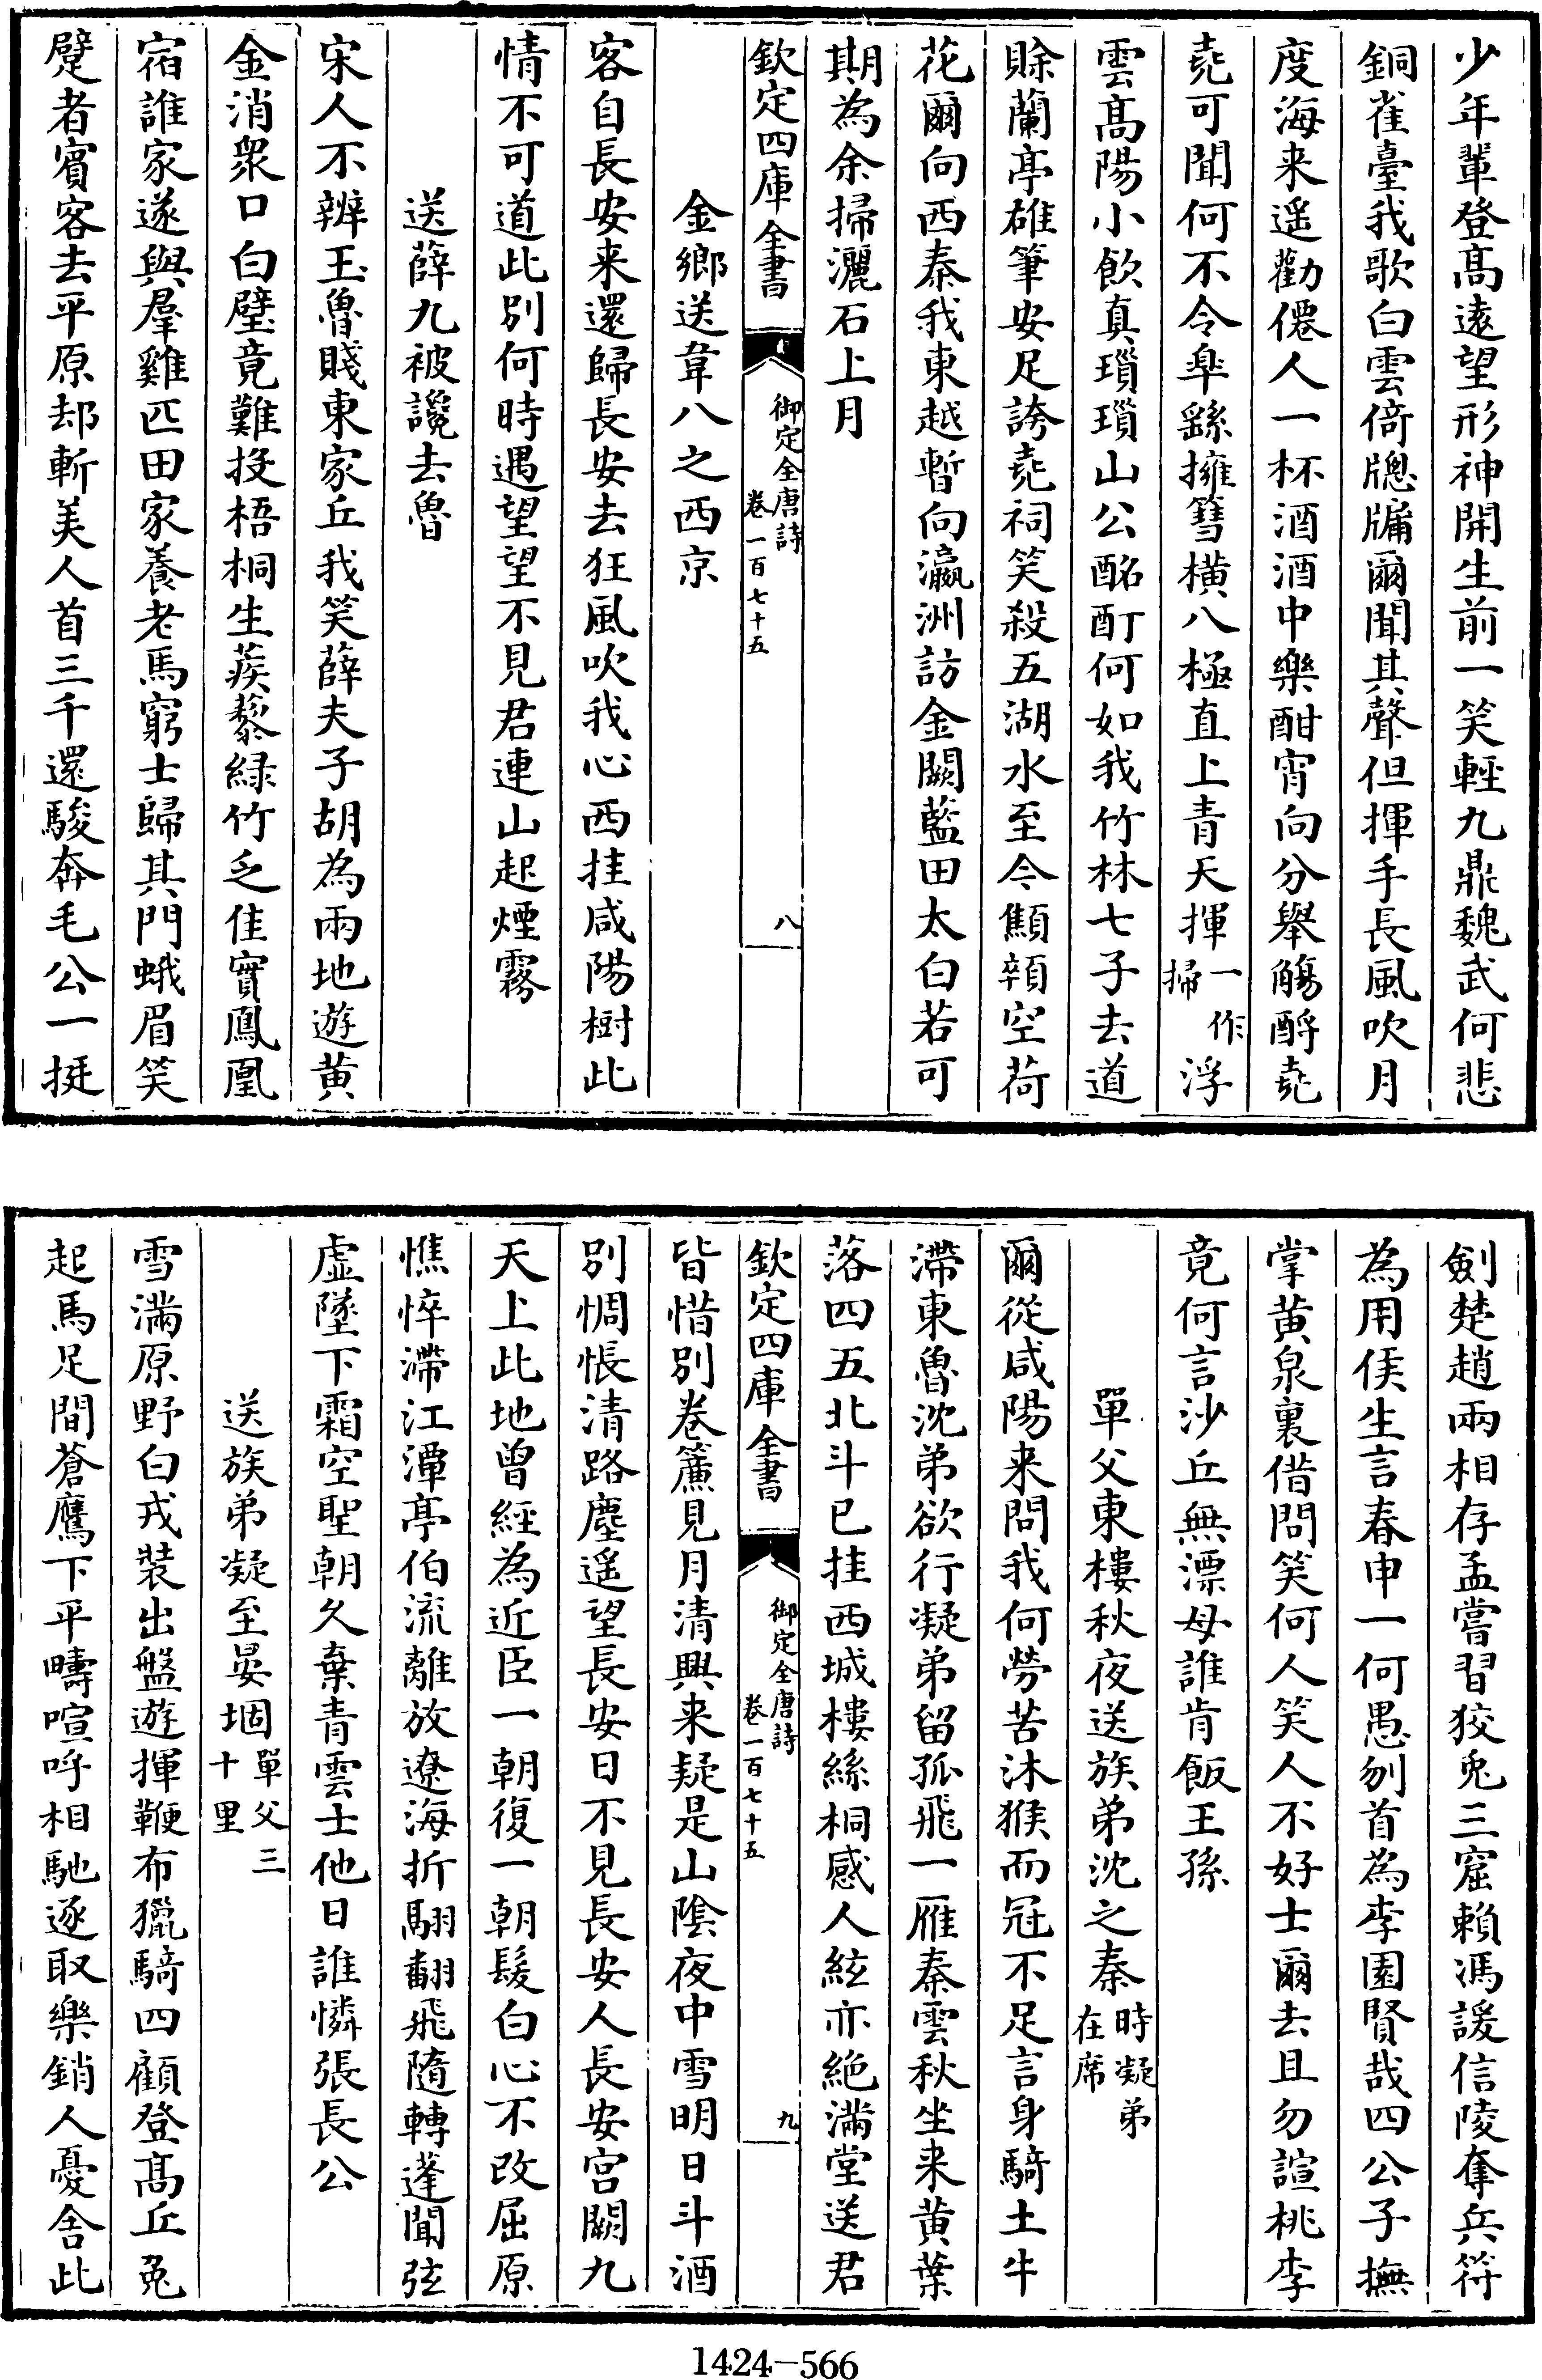 少年輩登髙逺望形神開生前一笑輕九鼎魏武何悲
銅雀臺我歌白雲倚牕牖爾聞其聲但揮手長風吹月
度海来遥勸僊人一杯酒酒中樂酣宵向分舉觴酹堯
堯可聞何不令臯繇擁篲橫八極直上青天揮一作掃浮
雲髙陽小飲真瑣瑣山公酩酊何如我竹林七子去道
賖蘭亭雄筆安足誇堯祠笑殺五湖水至今顦顇空荷
花爾向西秦我東越暫向瀛洲訪金闕藍田太白若可
期為余掃灑石上月
欽定四庫全書
御定全唐詩
卷一百七十五
八
金鄉送韋八之西京
客自長安来還歸長安去狂風吹我心西挂咸陽樹此
情不可道此別何時遇望望不見君連山起煙霧
送薛九被讒去魯
宋人不辨玉魯賤東家丘我笑薛夫子胡為兩地遊黄
金消衆口白璧竟難投梧桐生蒺藜緑竹乏佳實鳳凰
宿誰家遂與羣雞匹田家養老馬窮士歸其門蛾眉笑
躄者賓客去平原却斬美人首三千還駿奔毛公一挺
劍楚趙兩相存孟嘗習狡兎三窟賴馮諼信陵奪兵符
為用侯生言春申一何愚刎首為李園賢哉四公子撫
掌黄泉裏借問笑何人笑人不好士爾去且勿諠桃李
竟何言沙丘無漂母誰肯飯王孫
單父東樓秋夜送族弟沈之秦時凝弟在席
爾從咸陽来問我何勞苦沐猴而冠不足言身騎土牛
滯東魯沈弟欲行凝弟留孤飛一雁秦雲秋坐来黄葉
落四五北斗已挂西城樓絲桐感人絃亦絶滿堂送君
皆惜別卷簾見月清興来疑是山隂夜中雪明日斗酒
別惆悵清路塵遥望長安日不見長安人長安宫闕九
天上此地曾經為近臣一朝復一朝髮白心不改屈原
憔悴滯江潭亭伯流離放遼海折翮翻飛隨轉蓬聞弦
虚墜下霜空聖朝久棄青雲士他日誰憐張長公
欽定四庫全書
御定全唐詩
卷一百七十五
九
送族弟凝至晏堌單父三十里
雪滿原野白戎裝出盤遊揮鞭布獵騎四顧登髙丘兎
起馬足間蒼鷹下平疇喧呼相馳逐取樂銷人憂舍此
1424-566